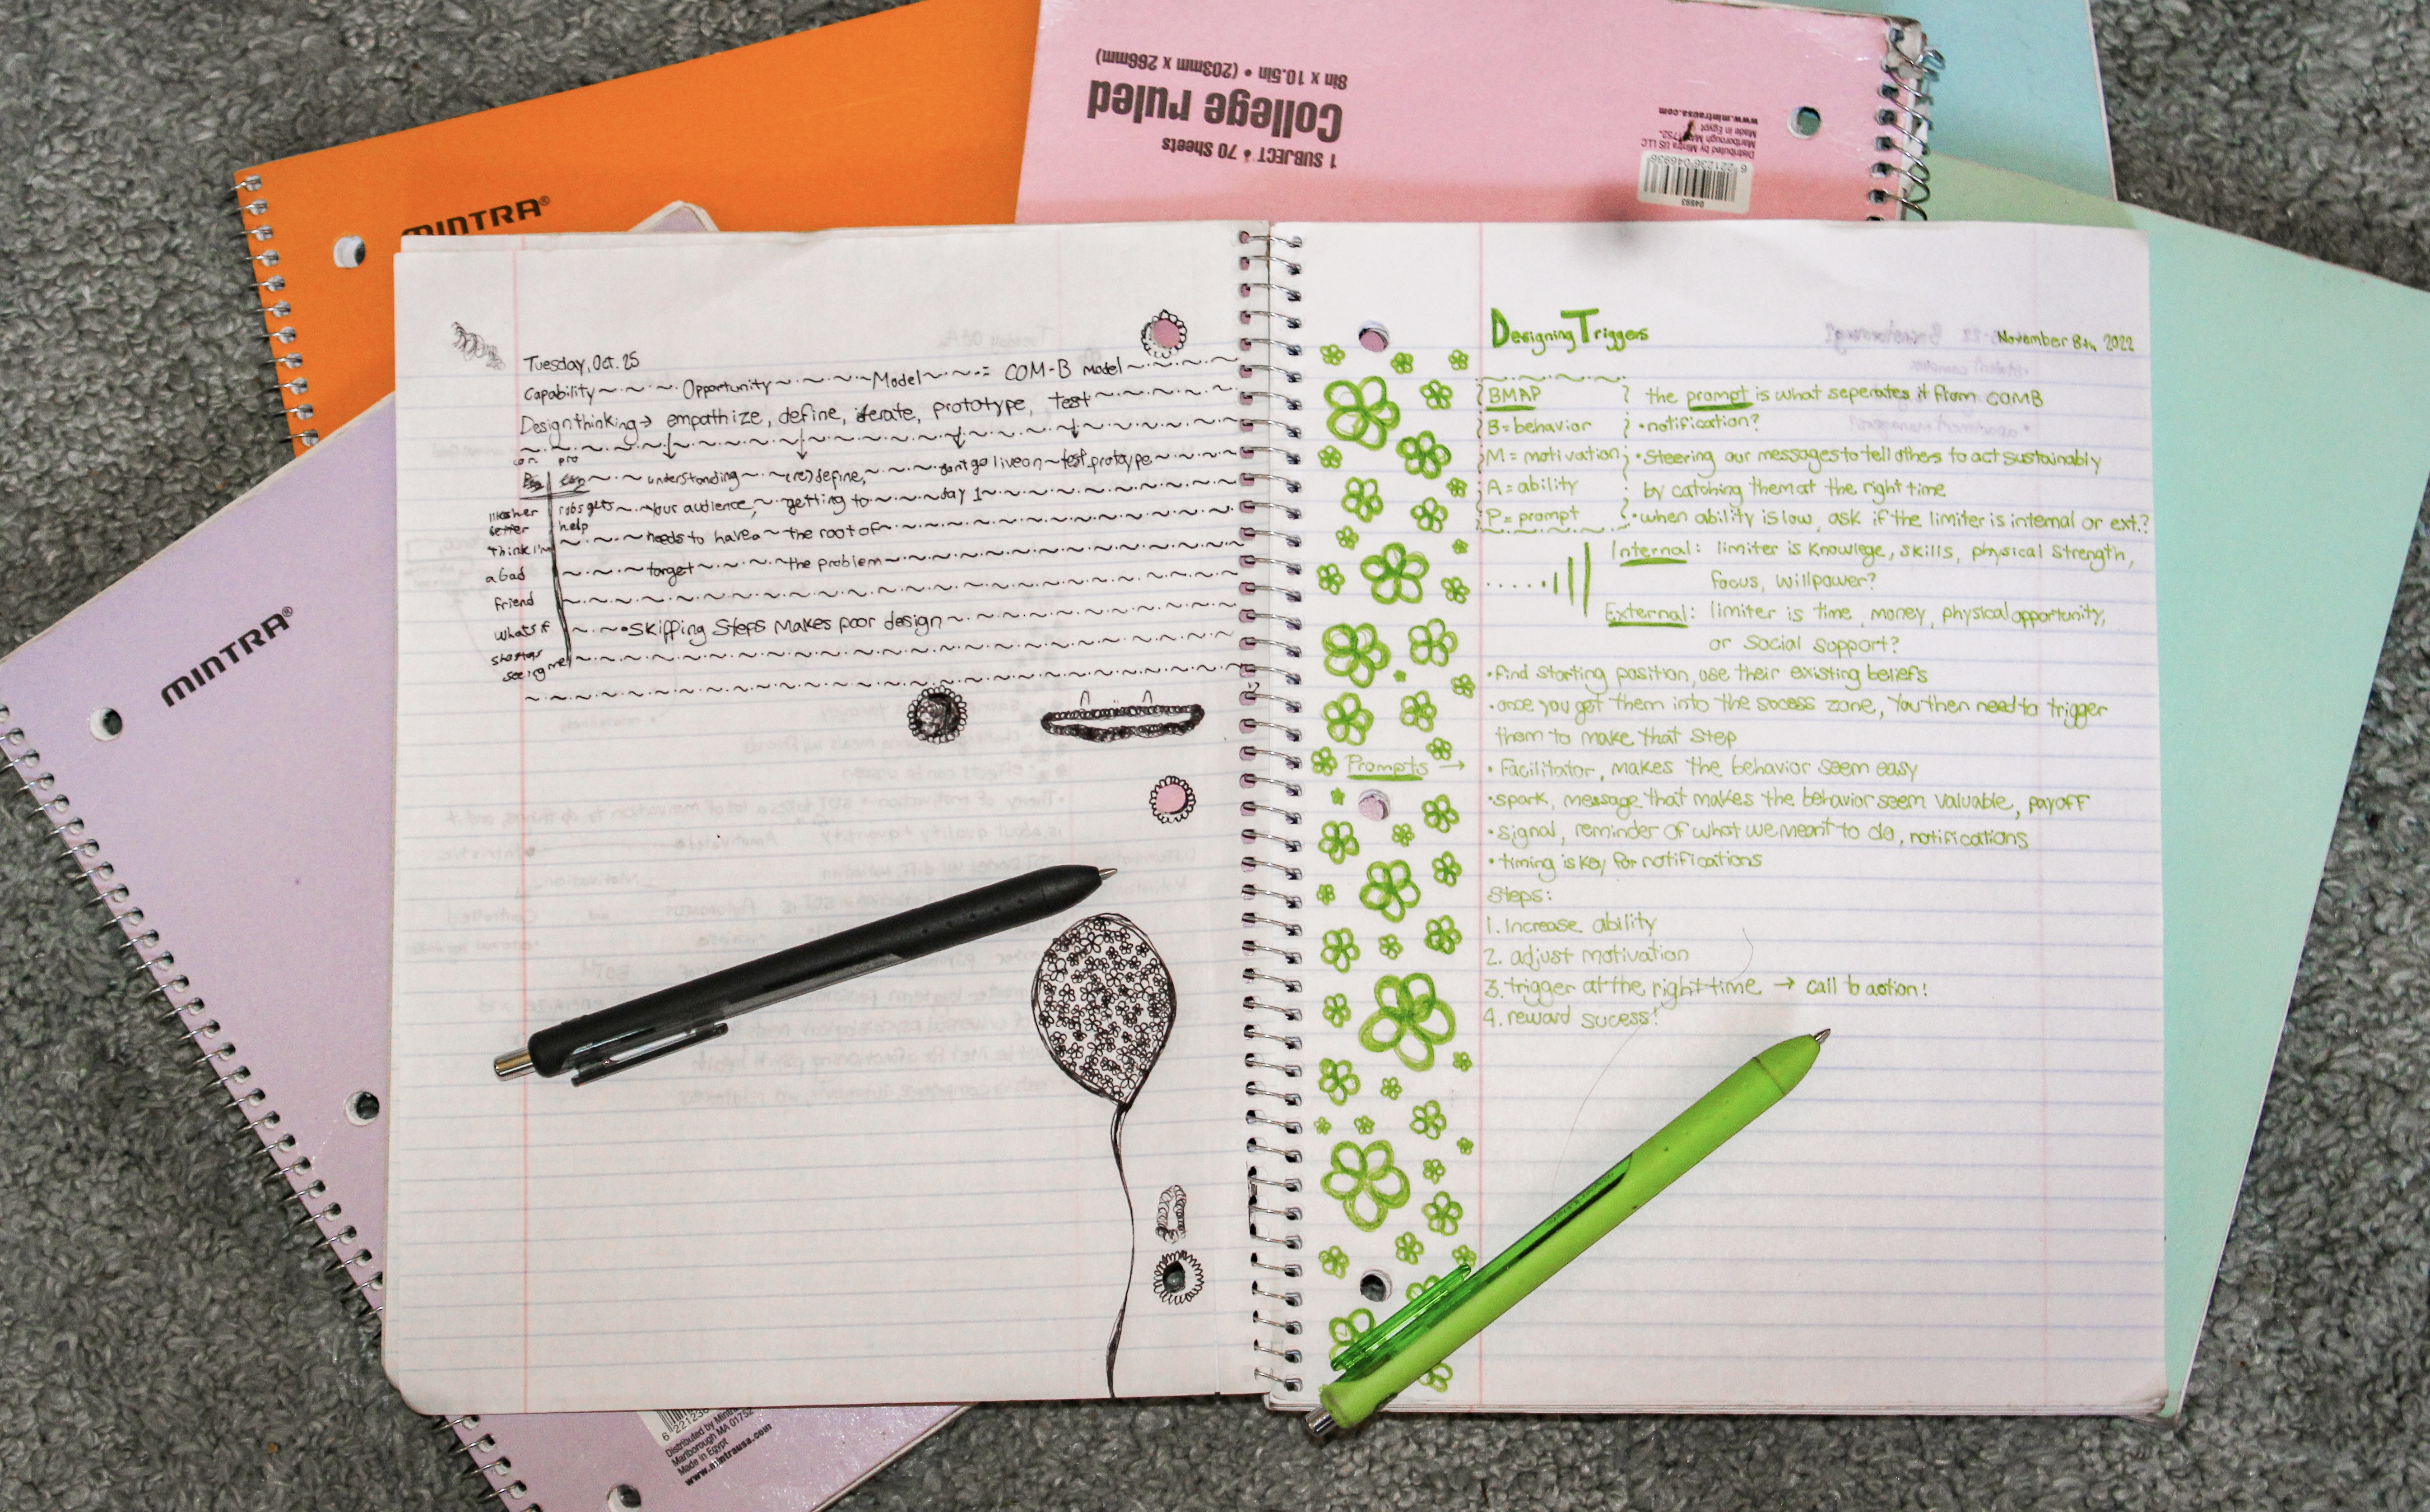 MINTRA®
8in x 10.5in • (203mm x 266mm)
College ruled
1 SUBJECT • 70 Sheets
www.mintrausa.com
Made in Egypt
Marlborough MA
Distributed by Mintra US LLC
6 221236 046936
04693
MINTRA®
Tuesday, Oct. 25
Capability ~ Opportunity ~ Model ~ = COM-B model
Design thinking → empathize, define, iterate, prototype, test
con pro
Pro con understanding (re)define, don't go live on test prototype
your audience, getting to day 1
help needs to have a the root of
think I'm target the problem
a bad
friend
what if •Skipping Steps Makes poor design
seeing me
Designing Triggers November 8th 2022
BMAP the prompt is what seperates it from COMB
B=behavior •notification?
M=motivation •Steering our messages to tell others to act sustainably
A=ability by catching them at the right time
P=prompt •when ability is low, ask if the limiter is internal or ext.?
Internal: limiter is knowlege, skills, physical strength,
focus, willpower?
External: limiter is time, money, physical opportunity,
or social support?
•find starting position, use their existing beliefs
•once you get them into the socess zone, you then need to trigger
them to make that step
Prompts → •Facilitator, makes the behavior seem easy
•spark, message that makes the behavior seem valuable, payoff
•signal, reminder of what we meant to do, notifications
•timing is key for notifications
Steps:
1. Increase ability
2. adjust motivation
3. trigger at the right time → call to action!
4. reward sucess!
6 221236
Distributed by Mintra
Marlborough MA 01752
Made in Egypt
www.mintrausa.com